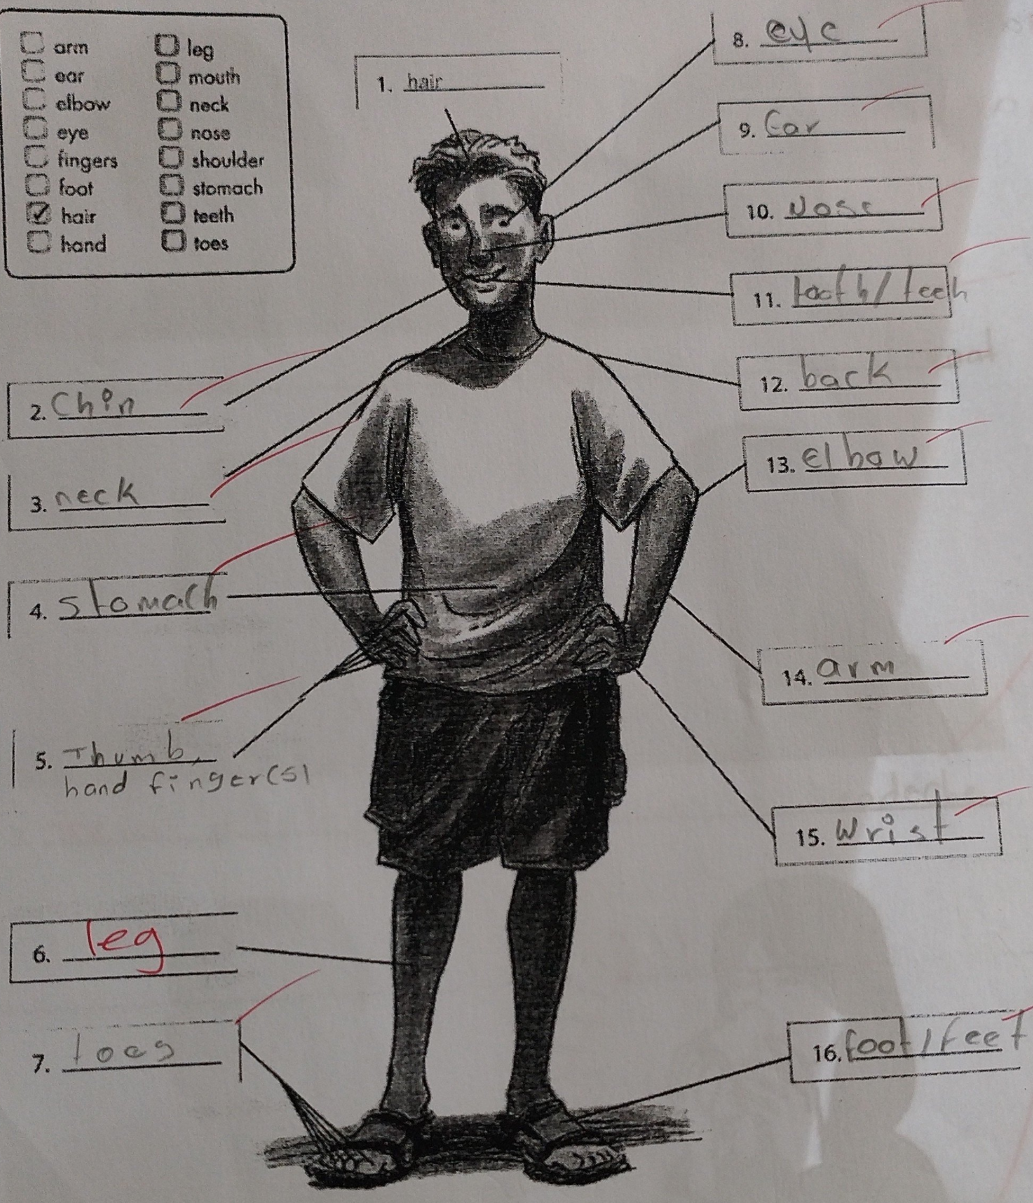 arm
ear
elbow
eye
fingers
foot
hair
hand
leg
mouth
neck
nose
shoulder
stomach
teeth
toes
1. hair
2. Chin
3. neck
4. stomach
5. Thumb,
hand finger(s)
6. leg
7. toes
8. eye
9. Ear
10. Nose
11. tooth/teeh
12. back
13. elbow
14. arm
15. wrist
16. foot/feet